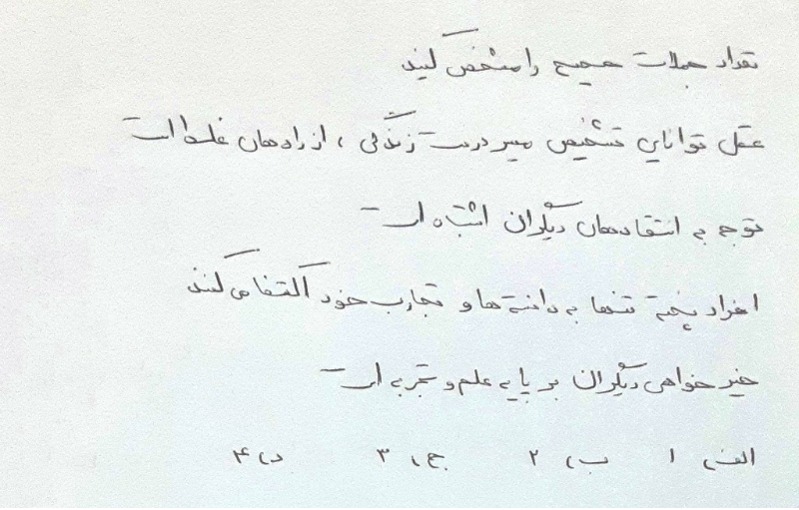 تعداد جملات صحیح را مشخص کنید
عقل توانایی تشخیص مسیر درست زندگی ، از راههای غلط است
توجه به انتقادهای دیگران اشتباه است
افراد پخته تنها به دانسته ها و تجارب خود اکتفا می کنند
خیرخواهی دیگران بر پایه علم و تجربه است
الف) ۱ ب) ۲ ج) ۳ د) ۴